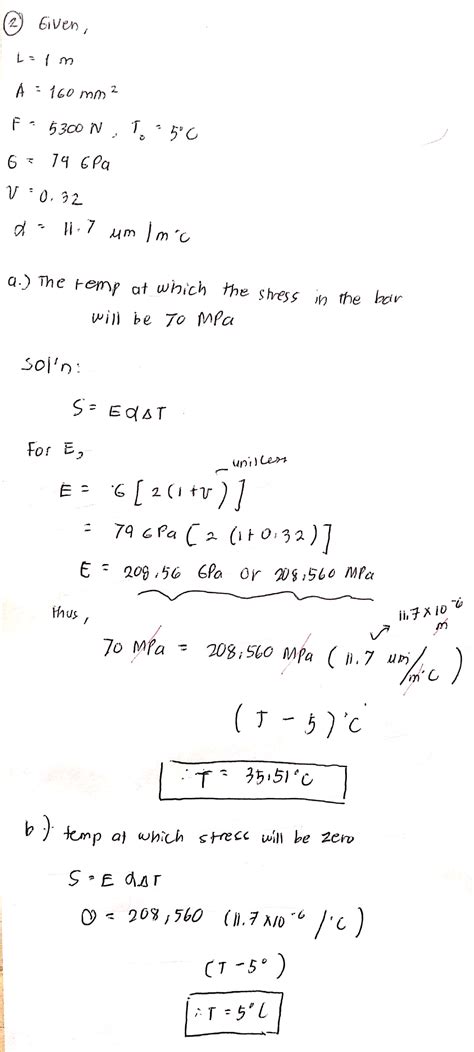 ② Given,
L = 1 m
A = 160 mm²
F = 5300 N, T₀ = 5°C
G = 79 GPa
V = 0.32
α = 11.7 μm/m°C
a.) The temp at which the stress in the bar
will be 70 MPa
Sol'n:
S = EαΔT
For E,
unitless
E = G[2(1+v)]
= 79 GPa [2 (1+0.32)]
E = 208.56 GPa or 208,560 MPa
thus,
11.7 x 10⁻⁶ m
70 MPa = 208,560 MPa (11.7 μm/m°C)
(T - 5)°C
∴ T = 35.51°C
b.) temp at which stress will be zero
S = EαΔT
0 = 208,560 (11.7 x10⁻⁶ /°C)
(T - 5°)
∴ T = 5°C